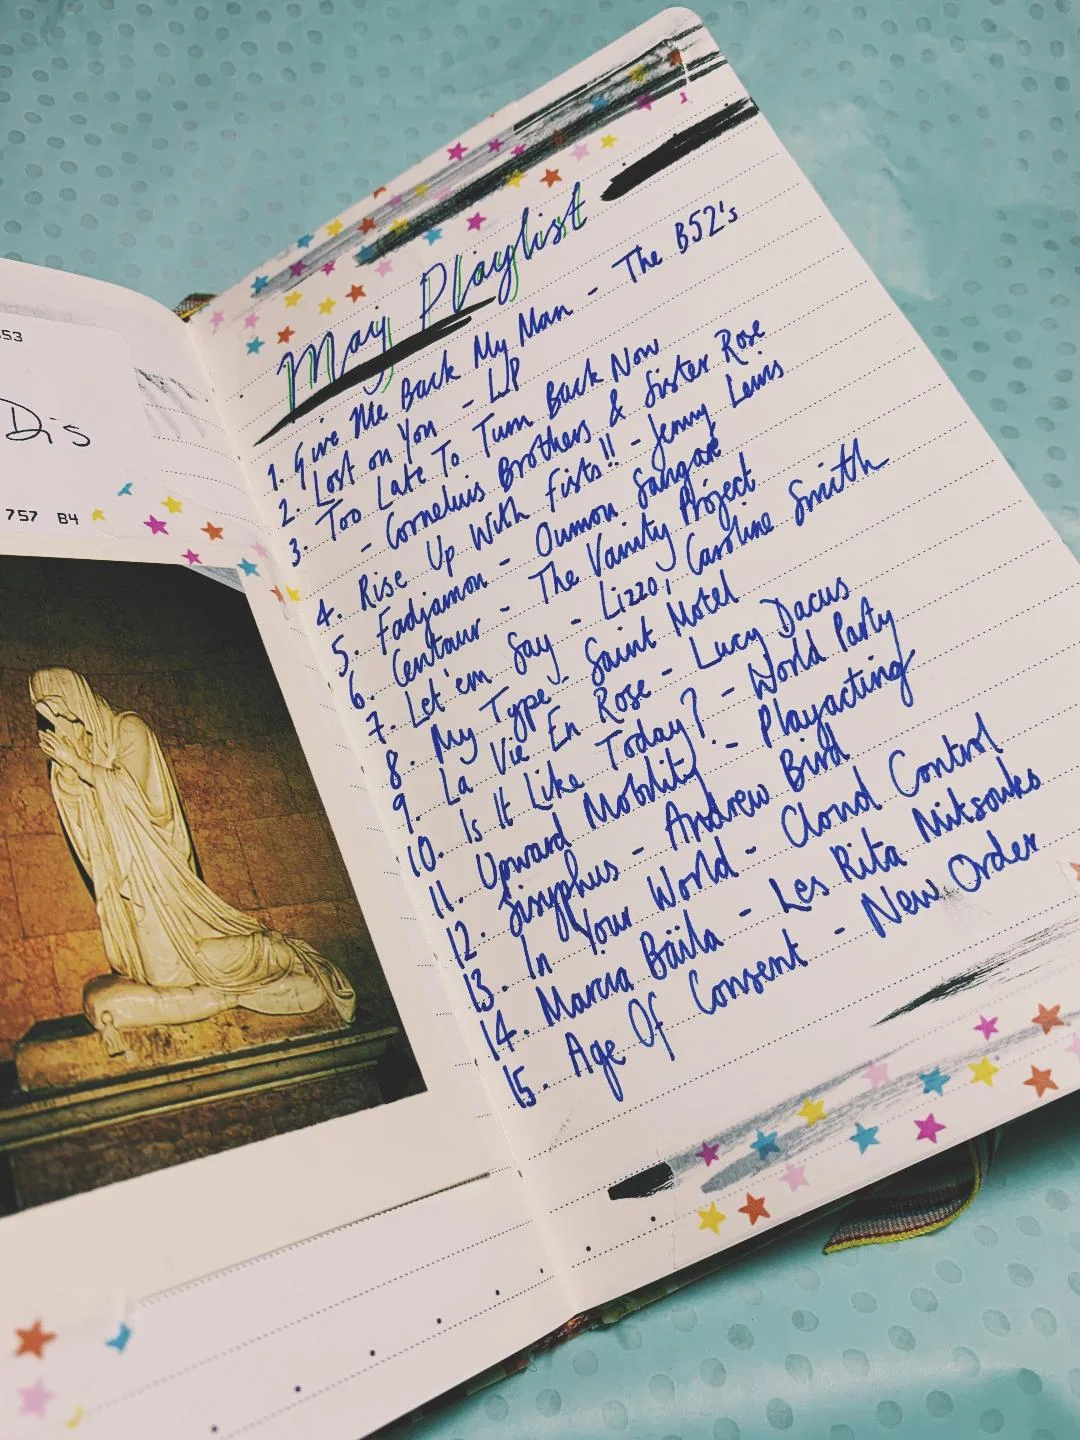 553
Dis
757 B4
May Playlist
1. Give Me Back My Man - The B52's
2. Lost on You - LP
3. Too Late To Turn Back Now
- Cornelius Brothers & Sister Rose
4. Rise Up With Fists!! - Jenny Lewis
5. Fadjamon - Oumou Sangare
6. Centaur - The Vanity Project
7. Let 'em Say - Lizzo, Caroline Smith
8. My Type - Saint Motel
9. La Vie En Rose - Lucy Dacus
10. Is It Like Today? - World Party
11. Upward Mobility - Playacting
12. Sisyphus - Andrew Bird
13. In Your World - Cloud Control
14. Marcia Baïla - Les Rita Mitsouko
15. Age Of Consent - New Order